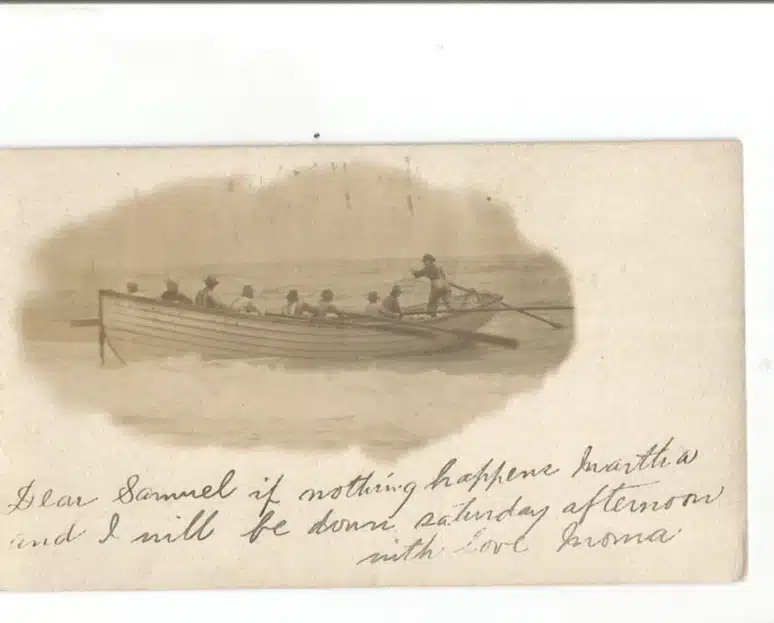 Dear Samuel if nothing happens Martha
and I will be down saturday afternoon
with love Moma